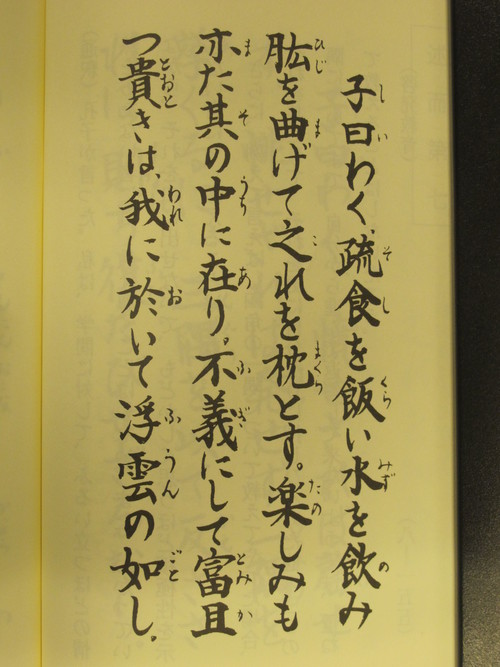 子曰わく、疏食を飯い水を飲み
肱を曲げて之れを枕とす。楽しみも
亦た其の中に在り。不義にして富且
つ貴きは、我に於いて浮雲の如し。